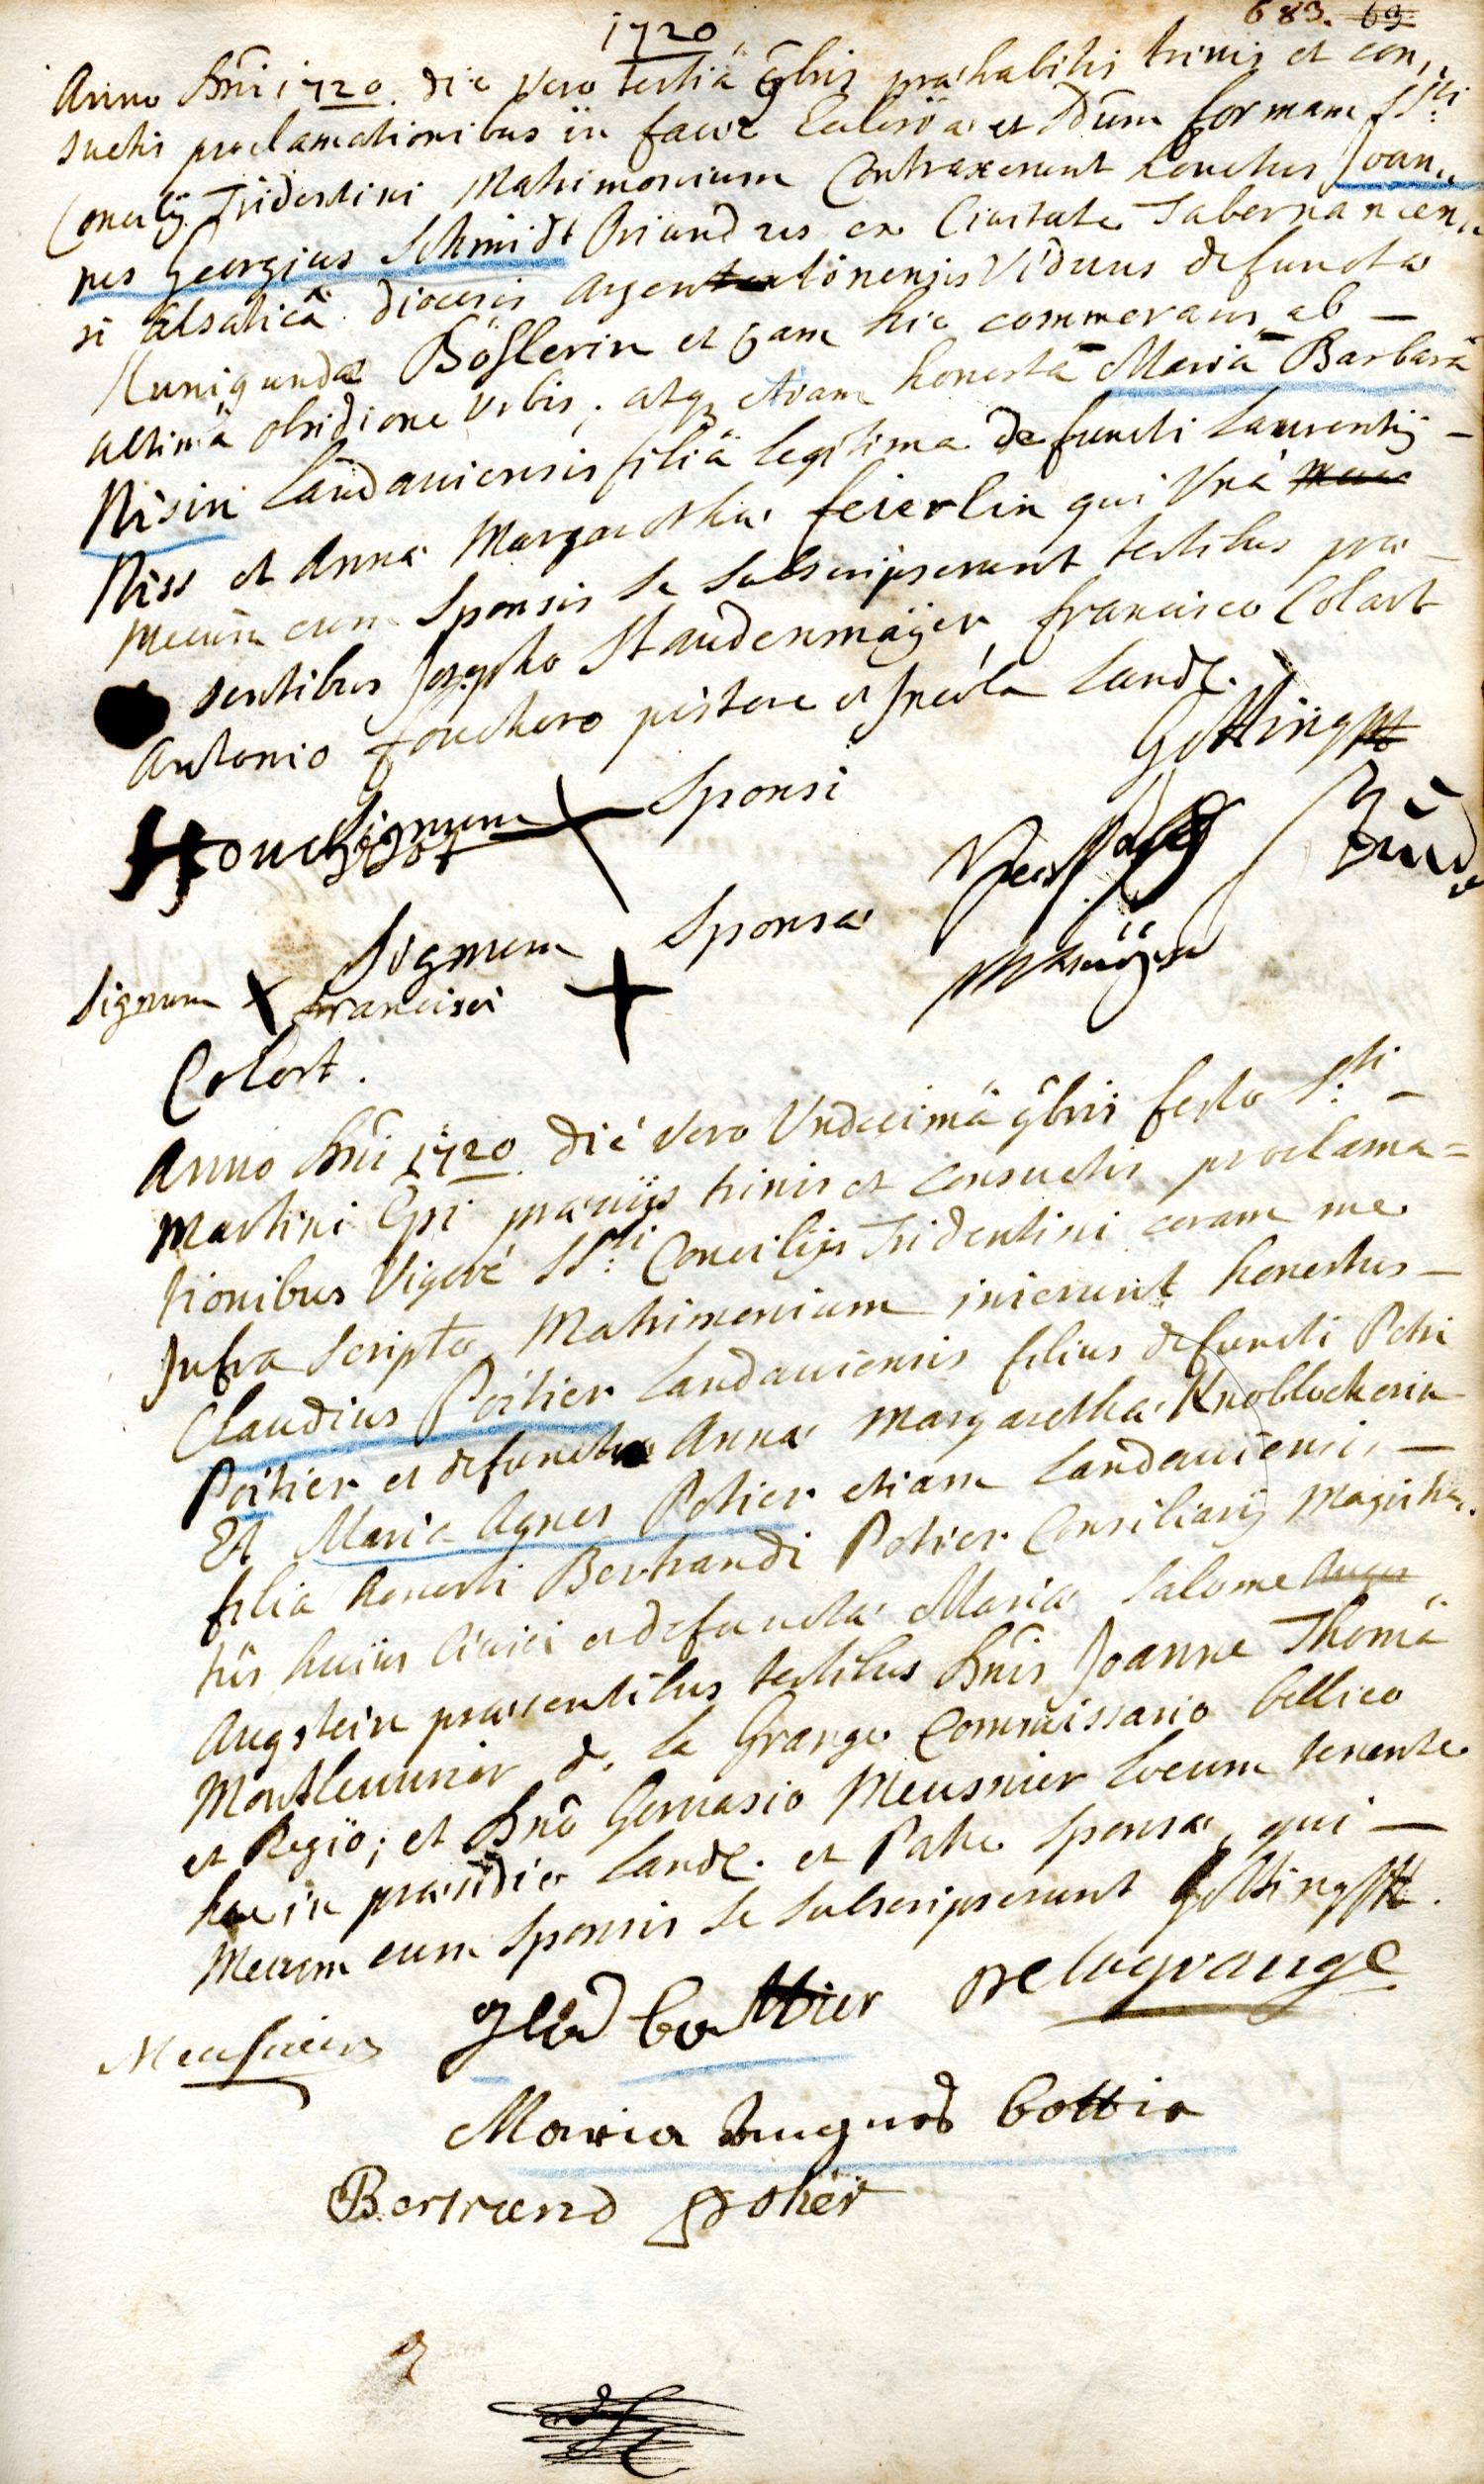 1720
683. 69
Anno Dn̄i 1720. die Vero tertiâ 9bris prae habitis trinis et con„
suetis proclamationibus in facie Ecclesiae et sdum formam SSti
Concilij Tridentini Matrimonium Contraxerunt honestus Joan„
nes Georgius Schmidt Oriundus ex Civitate Tabernancen„
si alsaticâ dioecesis argentortonensis Viduus defunctae
Kunigundae Böslerin et jam hic commorans ab
ultimâ obsidione Urbis, atq3 etiam honesta Maria Barbara
Nisin Landaviensis filia legitima defuncti Laurentij
Niss et Anna Margaretha feierlin qui Unà
mecum cum Sponsis se Subscripserunt testibus prae
sentibus Josepho Staudenmäÿer, francisco Colart
Antonio fouchero pistore et Incola Land.
Gotting
Signum Sponsi
Signum Sponsae
Signum francisci
Colart.
Anno Dn̄i 1720 die Vero Undecimâ 9bris festo Sti
Martini Epi praeviis trinis et consuetis proclama=
tionibus Vigore SSti Concilij Tridentini coram me
Infra Scripto Matrimonium inierunt honestus
Claudius Poitier Landaviensis filius defuncti Petri
Poitier et defunctae Annae Margaretha Knoblockerin
Et Maria Agnes Potier etiam Landaviensis
filia honesti Bertrandi Potier Consiliarij Magistra„
tûs huius Civici et defunctae Mariae Salome
Augstein praesentibus testibus Dn̄is Joanne Thomâ
Montleunier de la Grange Commissario bellico
et Regio; et Dn̄o Gervasio Meusnier Locum tenente
hoc in praesidio Land. et Patre Sponsae, qui
Mecum cum Sponsis se Subscripserunt Gotting
Meusniers
Glad bottier
Delagrange
Maria Angnes bottie
Bertrand potier